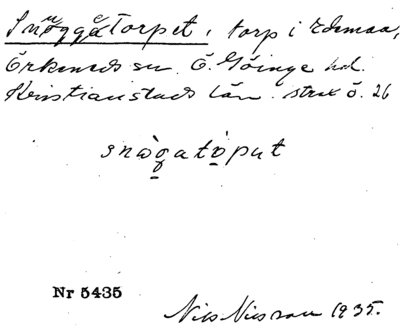 Snöggåtorpet, torp i Edemaa,
Örkeneds sn. Ö. Göinge hd.
Kristianstads län. strax ö. 26
snògatòput
Nr 5435
Nils Nilsson 1935.